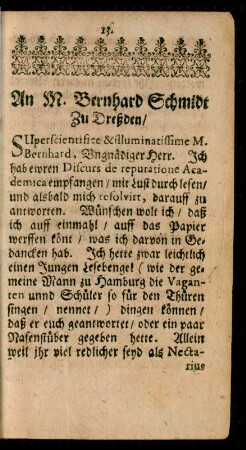 13.
An M. Bernhard Schmidt
Zu Dreßden/
SUperscientifice & illuminatissime M.
Bernhard, Vngnädiger Herr. Ich
hab ewren Discurs de reputatione Aca-
demica empfangen/ mit Lust durch lesen/
und alsbald mich resolvirt, darauff zu
antworten. Wünschen wolt ich/ daß
ich auff einmahl/ auff das Papier
werffen könt/ was ich darvon in Ge-
dancken hab. Ich hette zwar leichtlich
einen Jungen Lesebengel (wie der ge-
meine Mann zu Hamburg die Vagan-
ten unnd Schüler so für den Thüren
singen/ nennet/) dingen können/
daß er euch geantwortet/ oder ein paar
Nasenstüber gegeben hette. Allein
weil jhr viel redlicher seyd als Necta-
rius